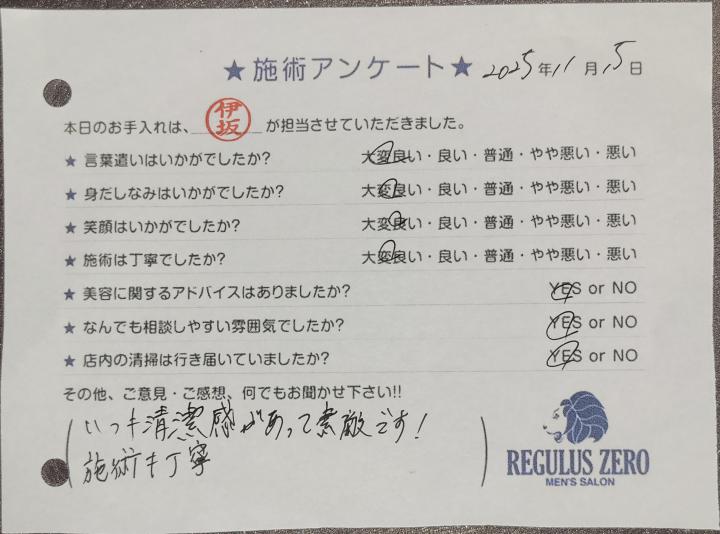 ★施術アンケート★ 2025年11月15日
本日のお手入れは、伊坂が担当させていただきました。
★ 言葉遣いはいかがでしたか? 大変良い・良い・普通・やや悪い・悪い
★ 身だしなみはいかがでしたか? 大変良い・良い・普通・やや悪い・悪い
★ 笑顔はいかがでしたか? 大変良い・良い・普通・やや悪い・悪い
★ 施術は丁寧でしたか? 大変良い・良い・普通・やや悪い・悪い
★ 美容に関するアドバイスはありましたか? YES or NO
★ なんでも相談しやすい雰囲気でしたか? YES or NO
★ 店内の清掃は行き届いていましたか? YES or NO
その他、ご意見・ご感想、何でもお聞かせ下さい!!
いつも清潔感があって素敵です!
施術も丁寧
REGULUS ZERO
MEN'S SALON